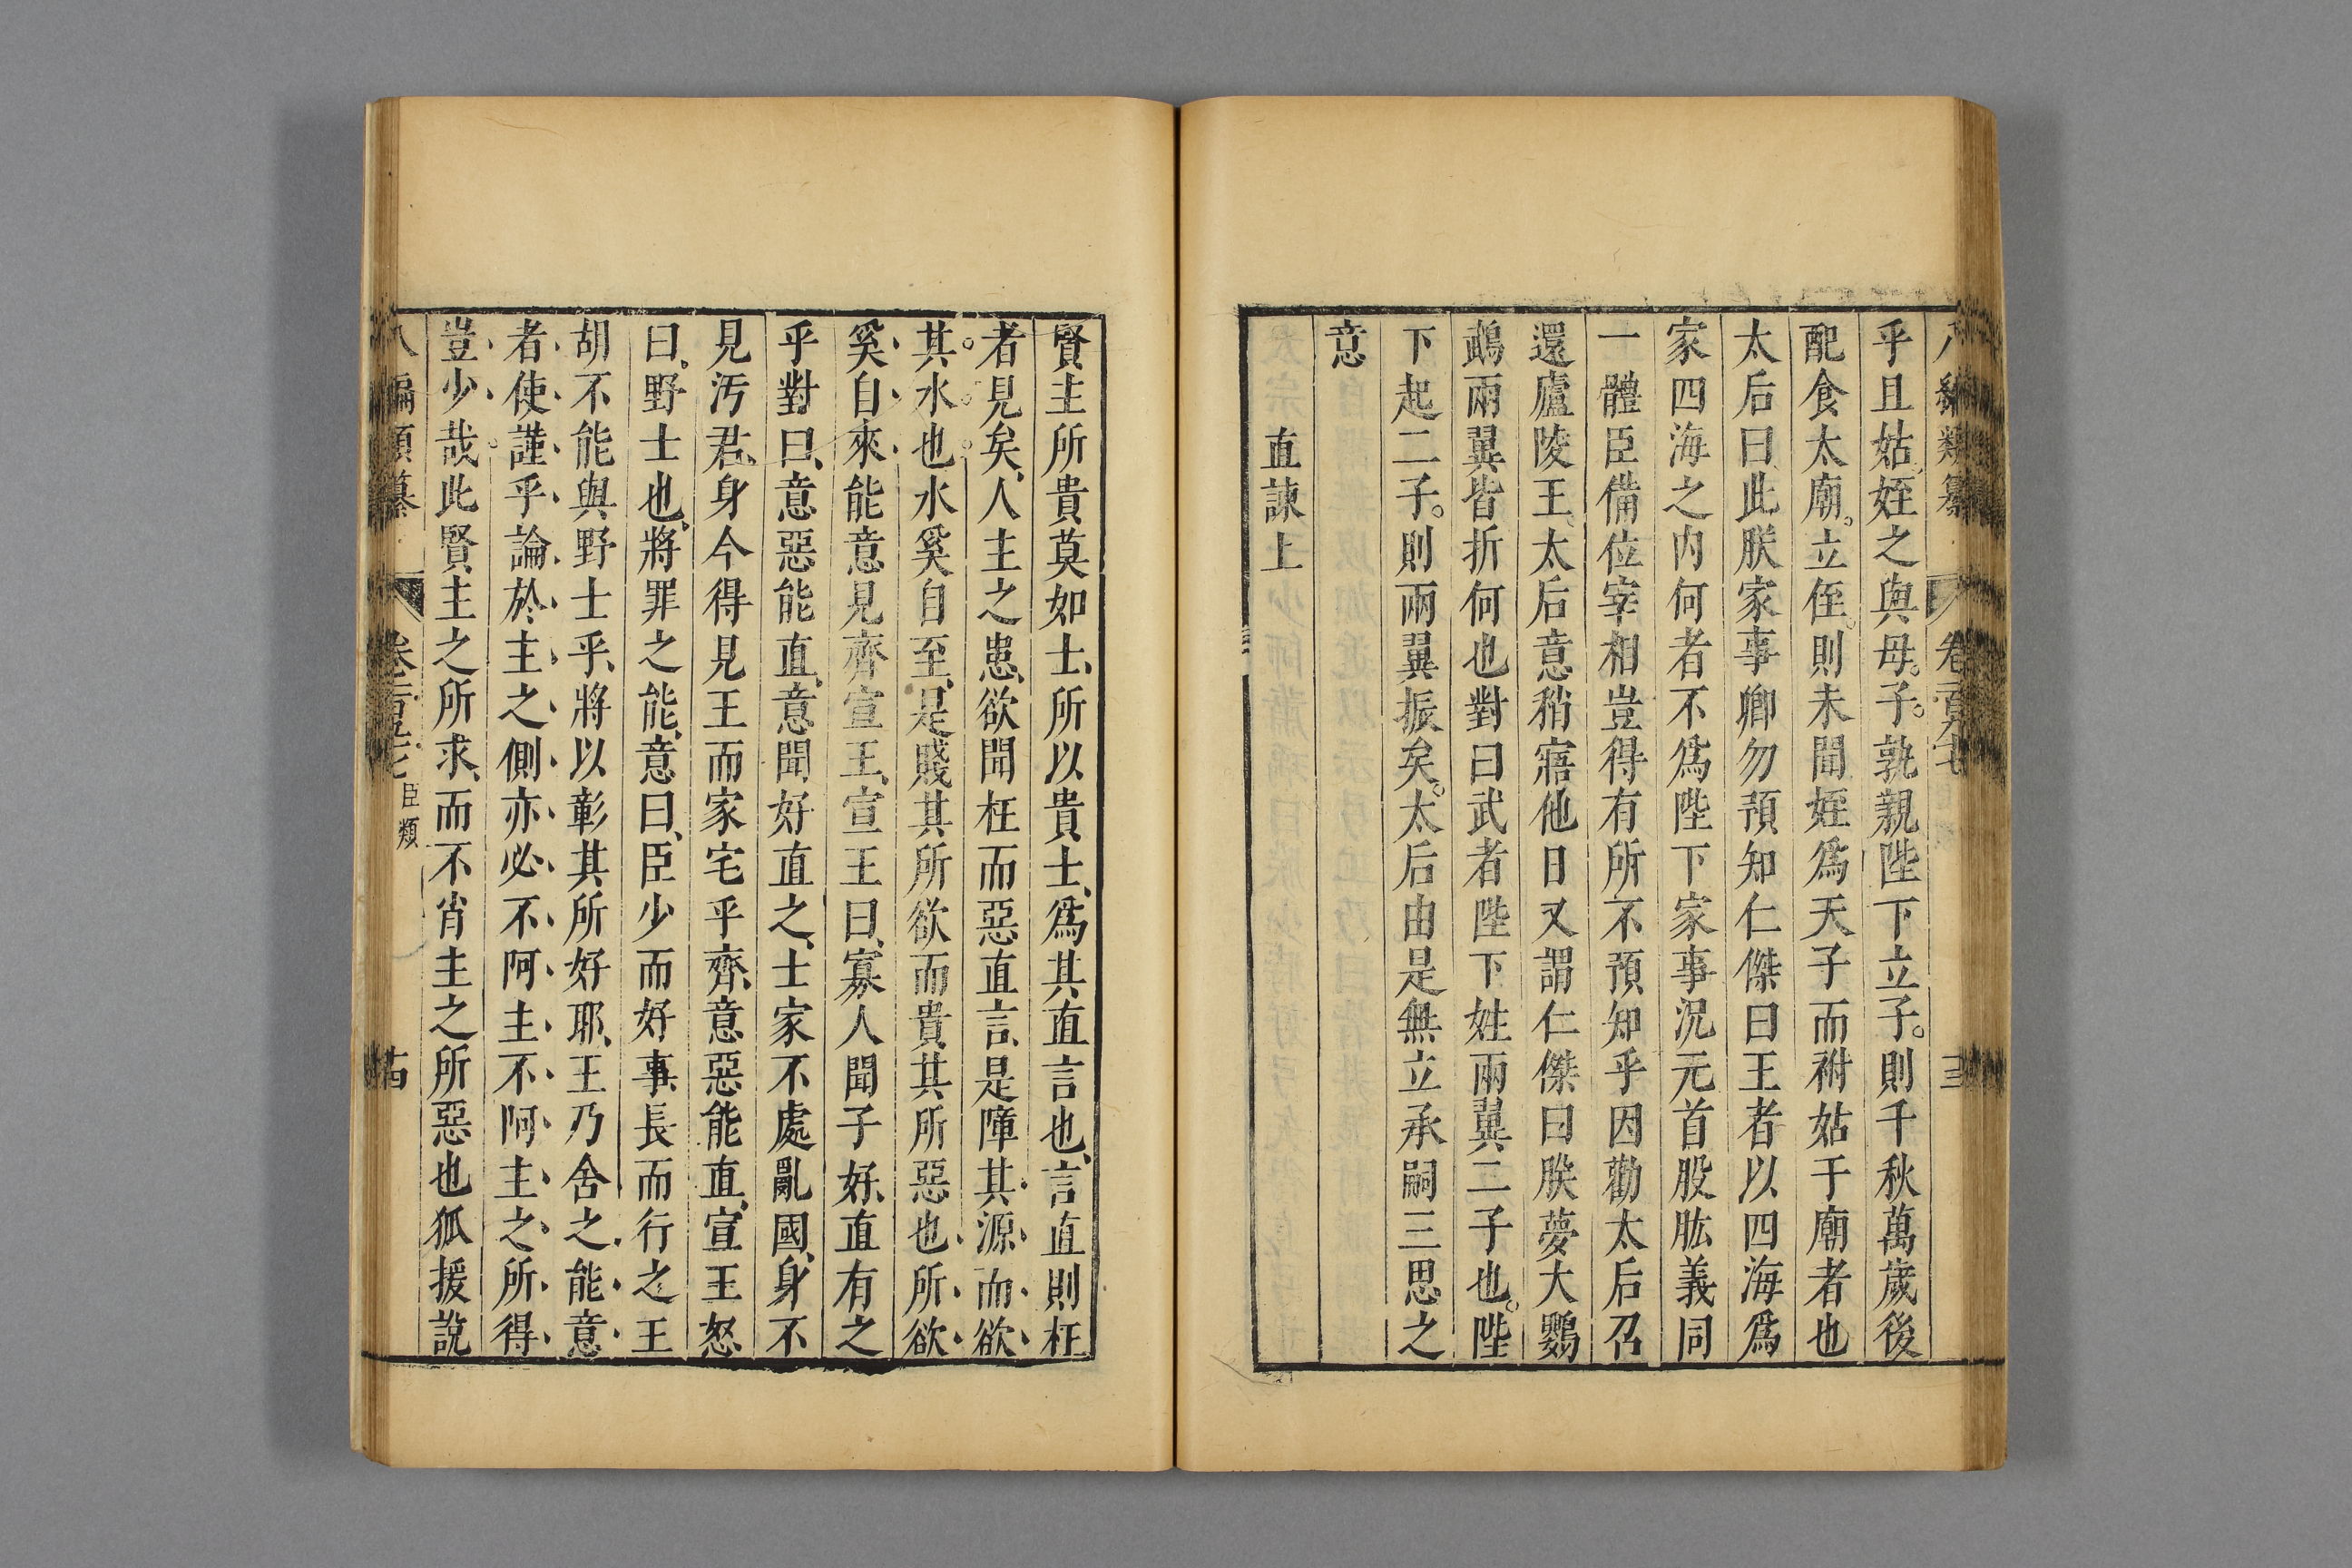 八編類纂 卷一百九十七 十三
乎且姑姪之與母子孰親陛下立子則千秋萬歲後
配食太廟立侄則未聞姪爲天子而祔姑于廟者也
太后曰此朕家事卿勿預知仁傑曰王者以四海爲
家四海之内何者不爲陛下家事況元首股肱義同
一體臣備位宰相豈得有所不預知乎因勸太后召
還廬陵王太后意稍寤他日又謂仁傑曰朕夢大鸚
鵡兩翼皆折何也對曰武者陛下姓兩翼二子也陛
下起二子則兩翼振矣太后由是無立承嗣三思之
意
直諫上
賢主所貴莫如士所以貴士爲其直言也言直則枉
者見矣人主之患欲聞枉而惡直言是障其源而欲
其水也水奚自至是賤其所欲而貴其所惡也所欲
奚自來能意見齊宣王宣王曰寡人聞子好直有之
乎對曰意惡能直意聞好直之士家不處亂國身不
見汚君身今得見王而家宅乎齊意惡能直宣王怒
曰野士也將罪之能意曰臣少而好事長而行之王
胡不能與野士乎將以彰其所好耶王乃舍之能意
者使謹乎論於主之側亦必不阿主不阿主之所得
豈少哉此賢主之所求而不肖主之所惡也狐援說
八編類纂 臣類 十四